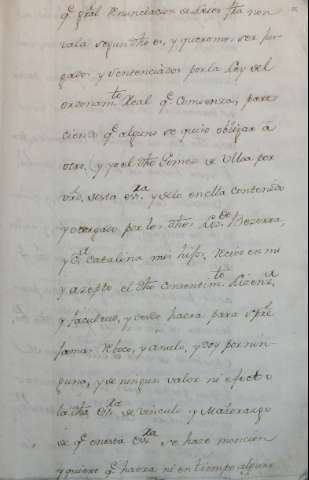 q.e gràl Renunciacion de Leies fha non
vala segun dho es, y queremos ser juz-
gados y Sentenciados por la Ley del
ordenam.to Real q.e Comienza, pare-
ciendo q.e alguno se quiso obligar à
otro, y yo el dho Gomez de Ulloa por
vtrd. desta es.ra y delo en ella contenido
y otorgado por los dhos Liz.do Bezerra,
y D.a Catalina mis hijos, Recivo en mi
y azepto el dho Consentim.to Lizenz.a
y facultad, y desde haora para siempre
jamas Reboco, y anulo, y doy por nin-
guno, y de ningun valor ni efecto
la dha es.ra de vinculo y Maiorazgo
de q.e enesta es.ra se hace moncion
y quiero q.e haora ni en tiempo alguno